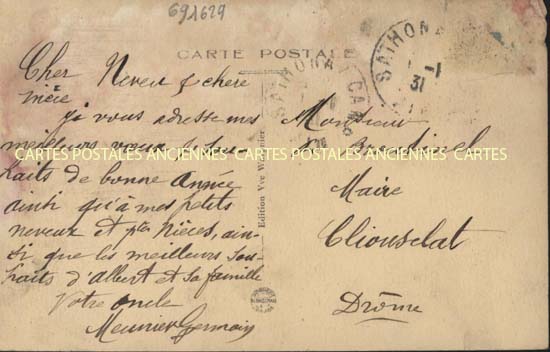 691629
CARTE POSTALE
SATHONAY CAMP
SATHONA
1-1
31
Cher Neveu & chere
nièce
je vous adresse mes
meilleurs vœux & sou-
haits de bonne année
ainsi qu'à mes petits
neveux et ptes nièces, ain-
si que les meilleurs sou-
haits d'albert et sa famille
Votre oncle
Meunier Germain
Edition Vve
Monsieur
Maire
Cliousclat
Drôme
CARTES POSTALES ANCIENNES CARTES POSTALES ANCIENNES CARTES